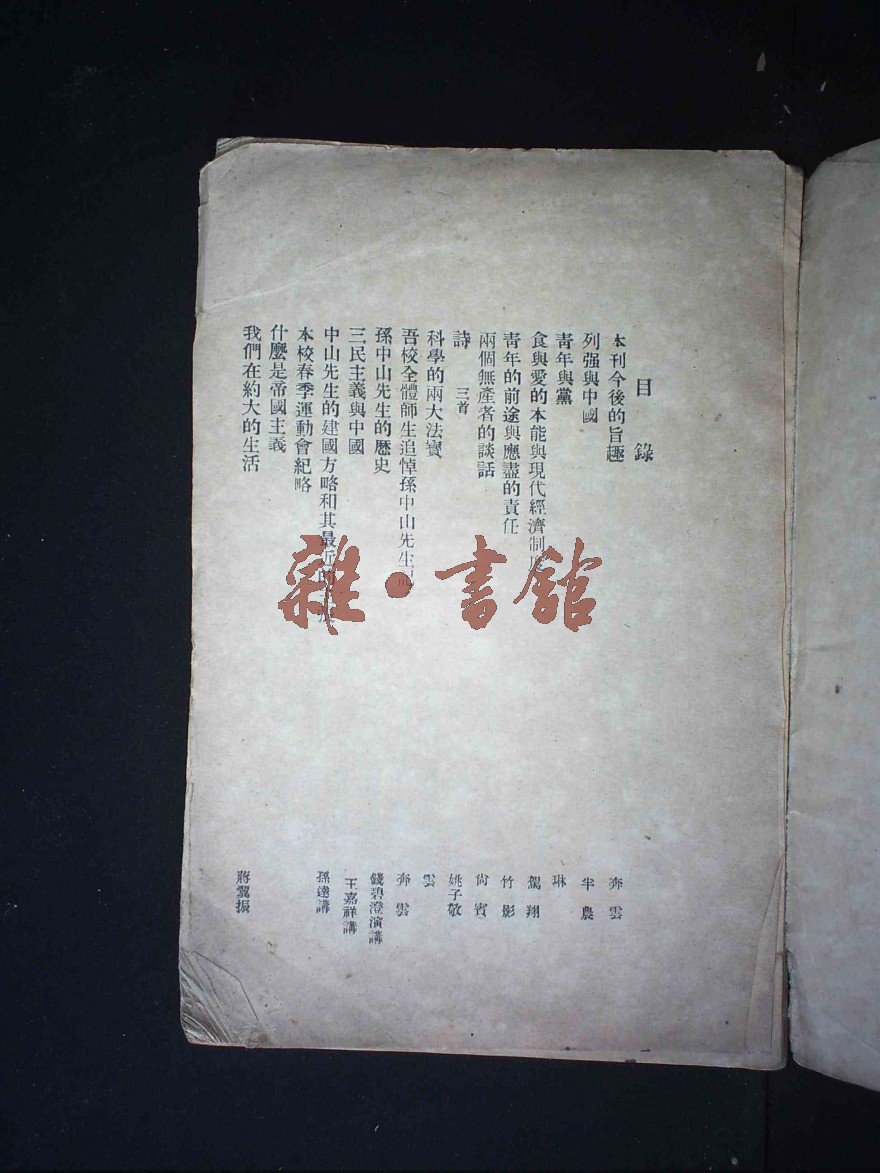 目錄
本刊今後的旨趣 奔雲
列强與中國 半農
青年與黨 琳
食與愛的本能與現代經濟制 駕翔
青年的前途與應盡的責任 竹影
兩個無產者的談話 尙賓
詩 三首 姚子敬
科學的兩大法寶 雲
吾校全體師生追悼孫中山先生記 奔雲
孫中山先生的歷史 錢碧澄演講
三民主義與中國 王嘉祥講
中山先生的建國方略和其最近的 孫逵講
本校春季運動會紀略
什麼是帝國主義
我們在約大的生活 蔣翼振
雜·書館